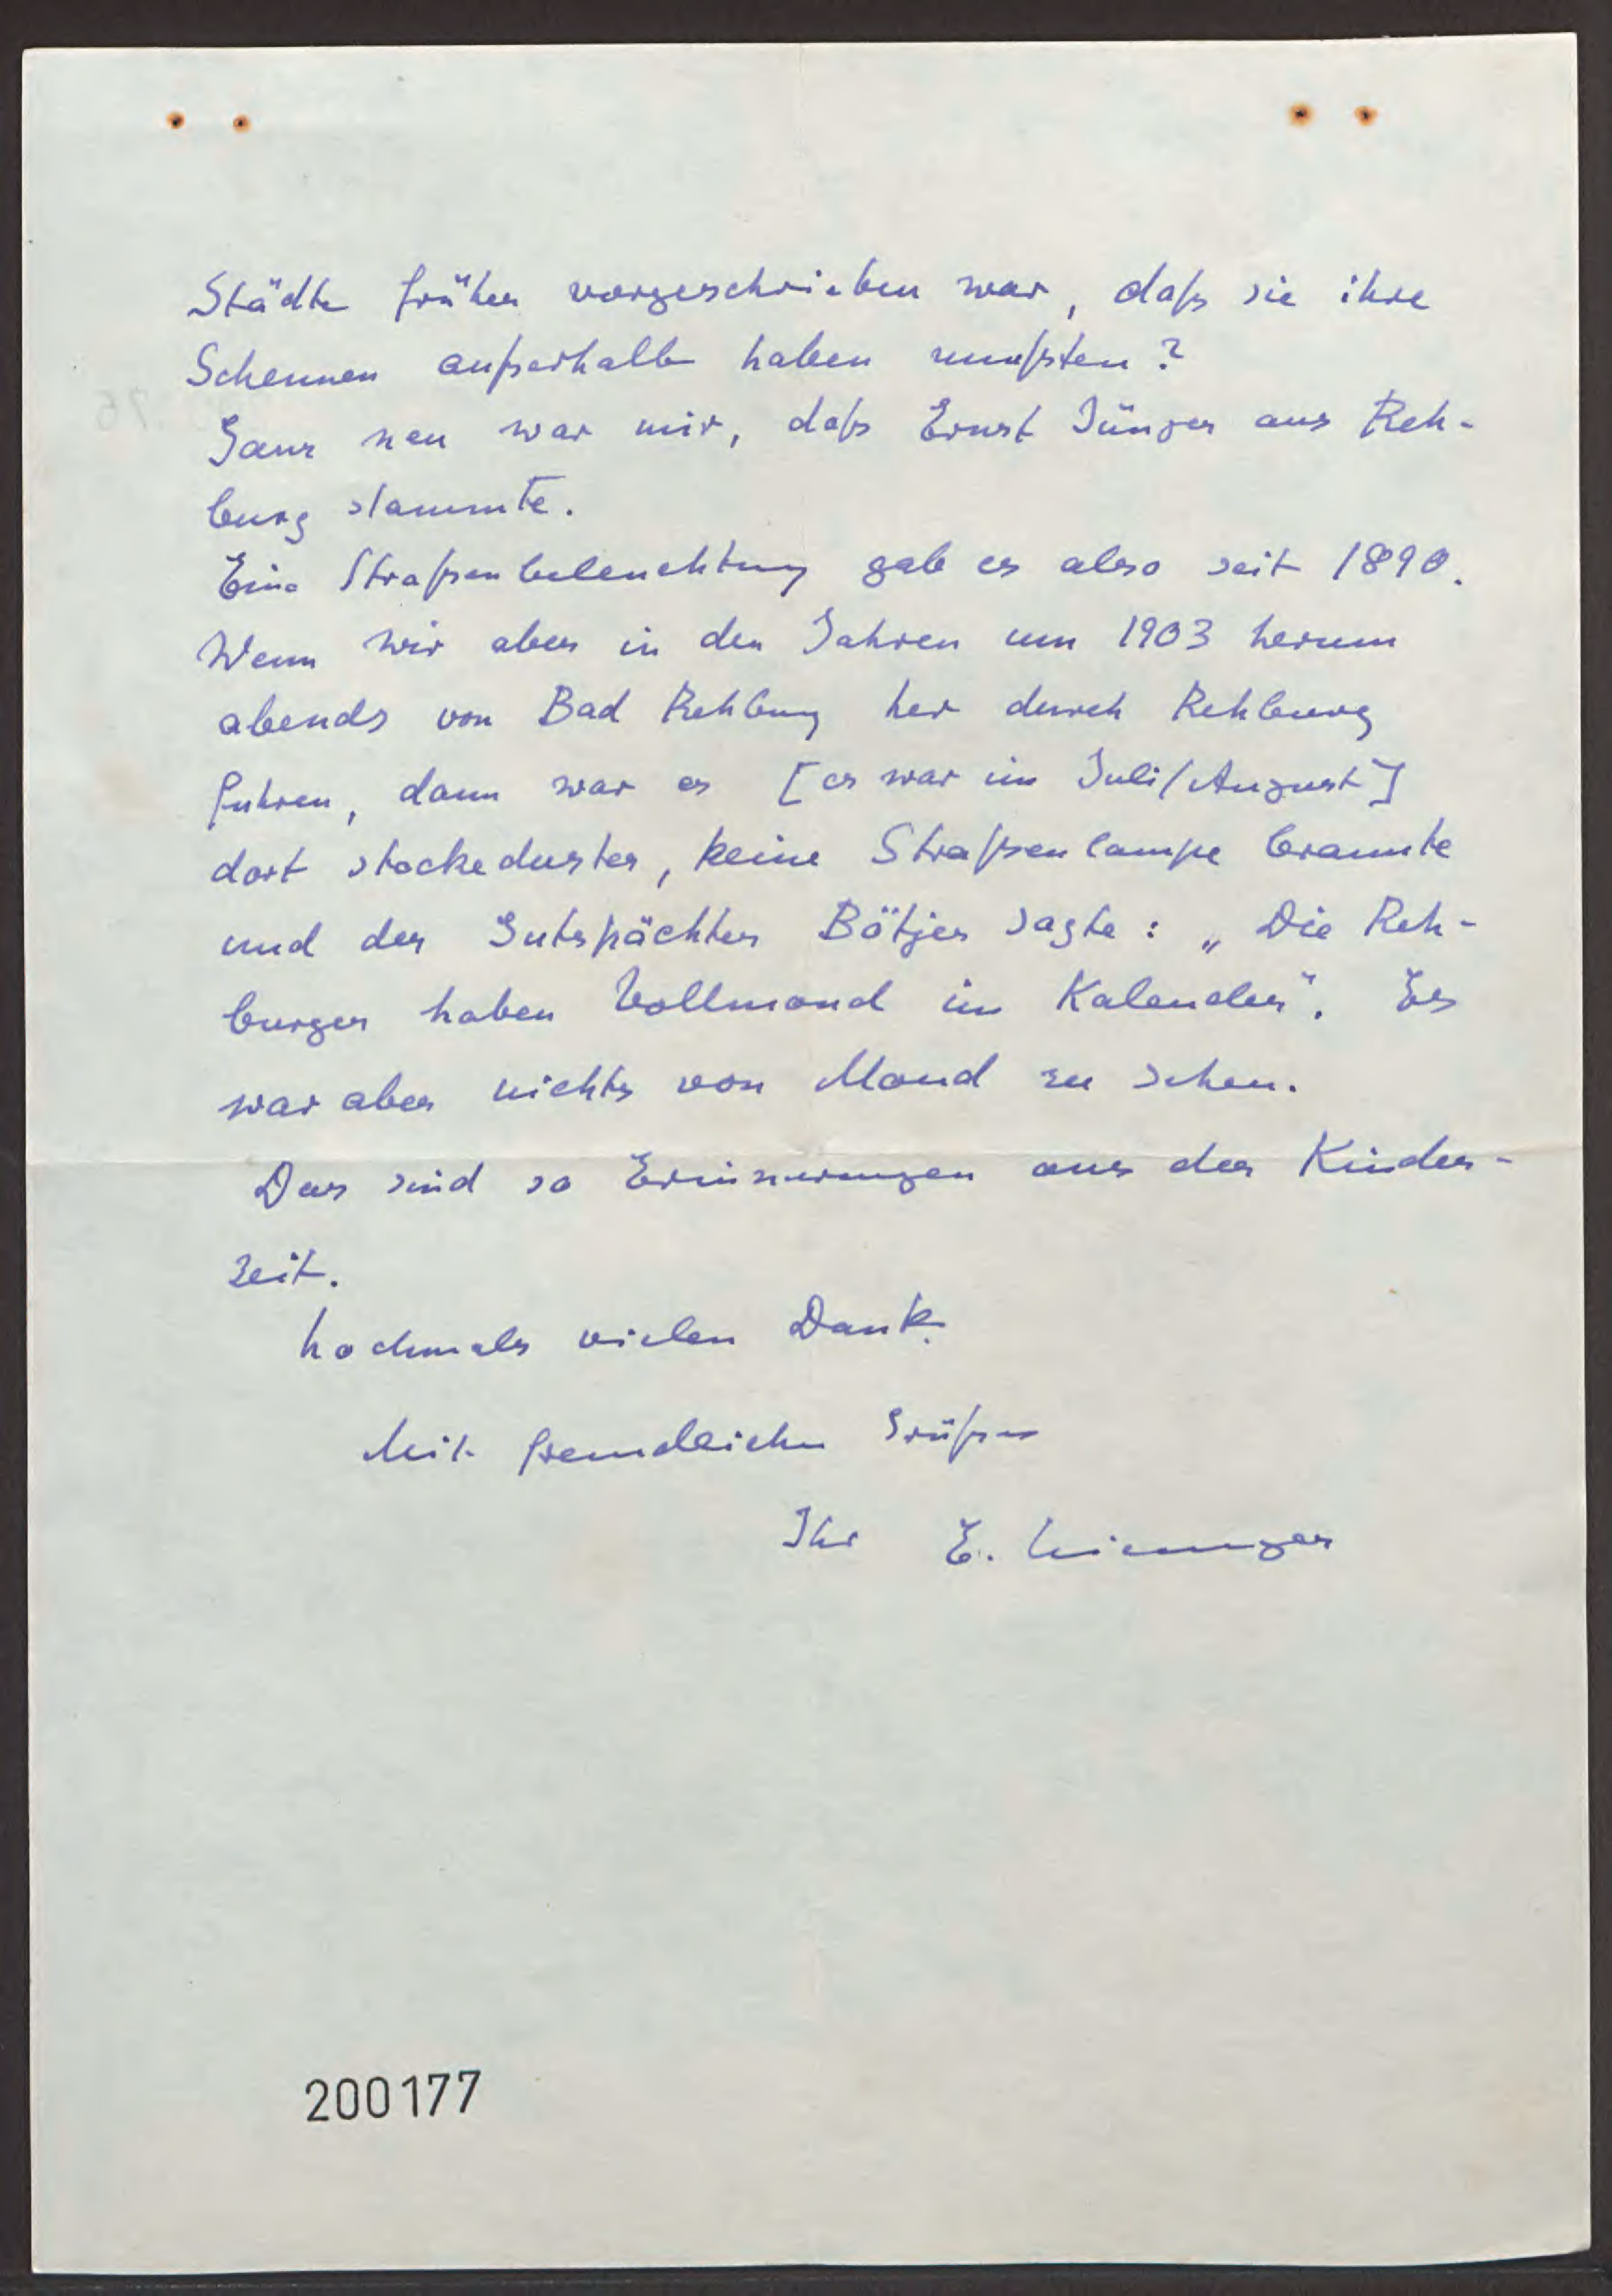 Städte früher vorgeschrieben war, daß sie ihre
Scheunen außerhalb haben mußten?
Ganz neu war mir, daß Ernst Jünger aus Reh-
burg stammte.
Eine Straßenbeleuchtung gab es also seit 1890.
Wenn wir aber in den Jahren um 1903 herum
abends von Bad Rehburg her durch Rehburg
fuhren, dann war es [es war im Juli/August]
dort stockeduster, keine Straßenlampe brannte
und der Gutspächter Bötjer sagte: „Die Reh-
burger haben Vollmond im Kalender". Es
war aber nichts von Mond zu sehen.
Das sind so Erinnerungen aus der Kinder-
zeit.
Nochmals vielen Dank.
Mit freundlichen Grüßen
Ihr E.
200177